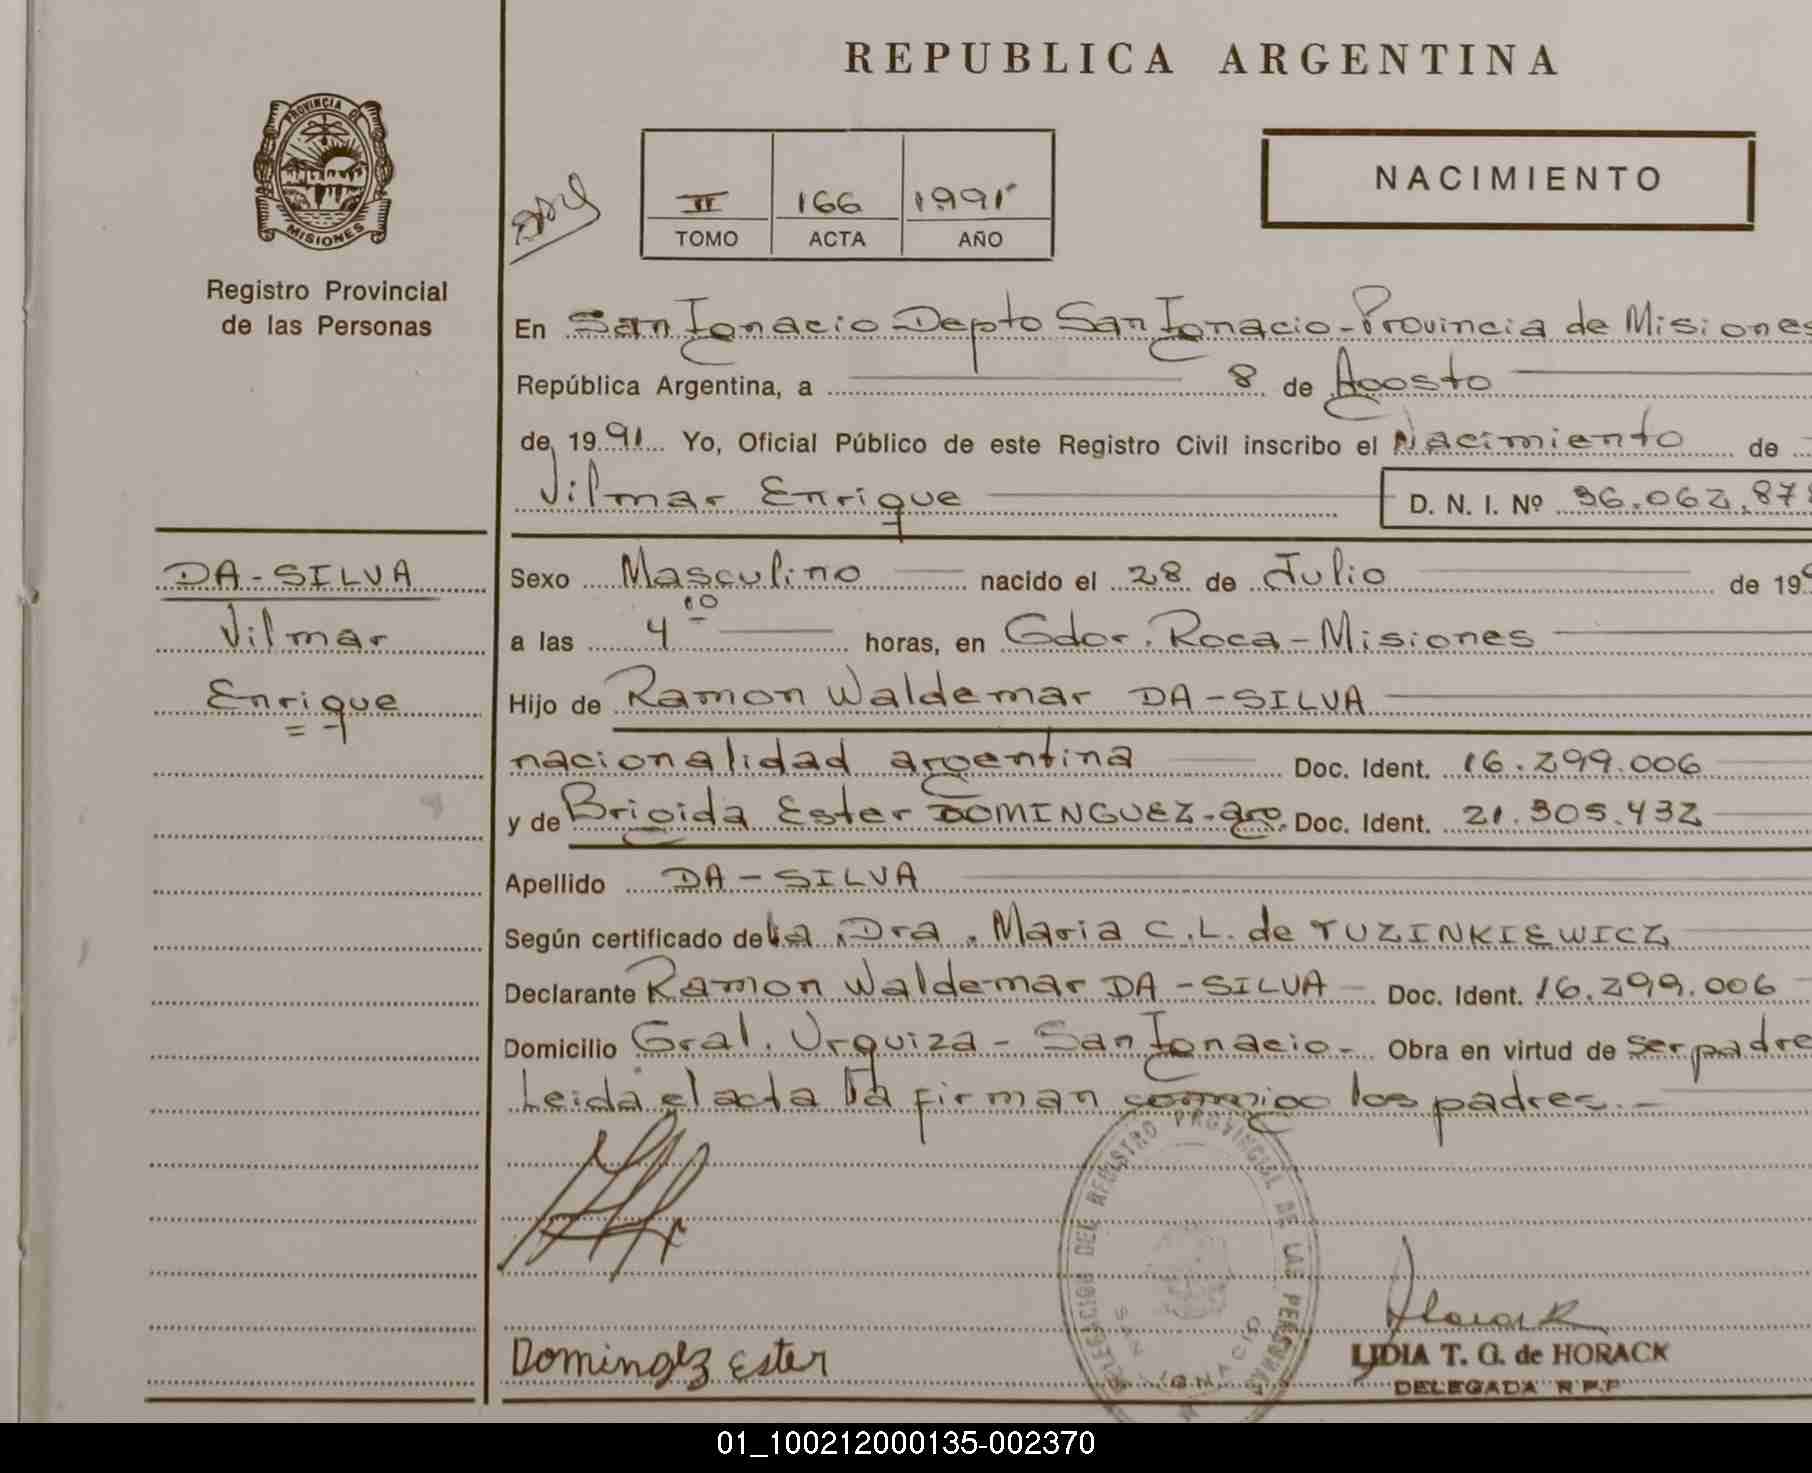 REPUBLICA ARGENTINA
PROVINCIA DE
MISIONES
Registro Provincial
de las Personas
II 166 1991
TOMO ACTA AÑO
NACIMIENTO
En San Ignacio Depto San Ignacio - Provincia de Misiones
República Argentina, a 8 de Agosto
de 1991 Yo, Oficial Público de este Registro Civil inscribo el Nacimiento de
Vilmar Enrique D. N. I. Nº 36.062.87
DA-SILVA
Vilmar
Enrique
Sexo Masculino nacido el 28 de Julio de 19
a las 4 10 horas, en Gdor. Roca - Misiones
Hijo de Ramon Waldemar DA-SILVA
nacionalidad argentina Doc. Ident. 16.299.006
y de Brigida Ester DOMINGUEZ - arg. Doc. Ident. 21.305.432
Apellido DA-SILVA
Según certificado de la Dra. Maria C. L. de TUZINKIEWICZ
Declarante Ramon Waldemar DA-SILVA - Doc. Ident. 16.299.006
Domicilio Gral. Urquiza - San Ignacio - Obra en virtud de ser padre
Leida el acta la firman conmigo los padres. -
DELEGACION DEL REGISTRO PROVINCIAL DE LAS PERSONAS
SAN IGNACIO
Domingez Ester
Horack
LIDIA T. G. de HORACK
DELEGADA R P.P
01_100212000135-002370